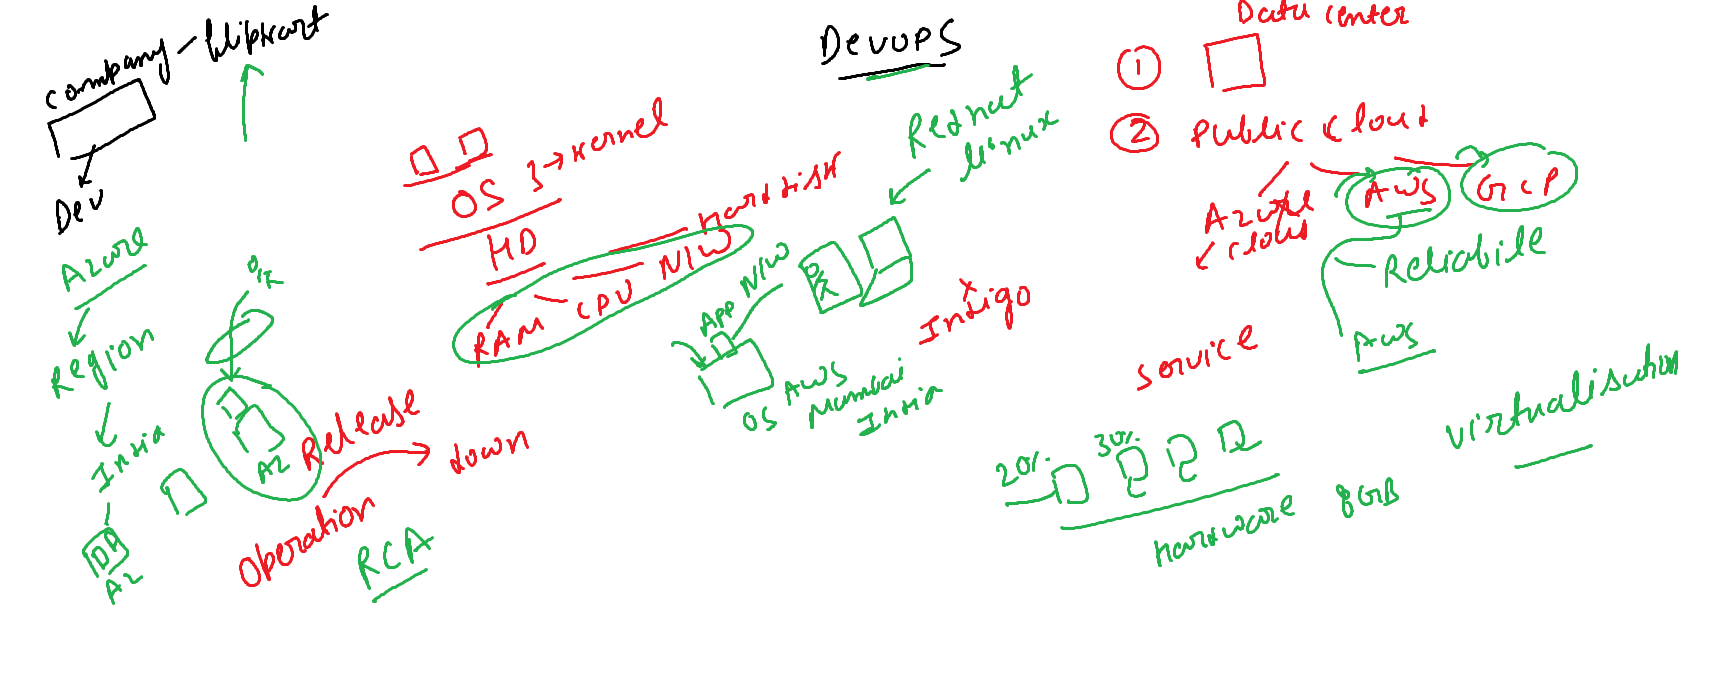 Company - flipkart
Dev
Azure
Region
India
AZ
O/R
AZ
Release
down
operation
RCA
OS } → kernel
HD
Harddisk
RAM CPU N/W
DevOPS
Redhat
Linux
App N/W
OS AWS
Mumbai
India
Indigo
Data center
1
2 Public cloud
Azure
cloud
AWS
GCP
Reliabile
AWS
service
20%
30%
Hardware 8GB
virtualisation